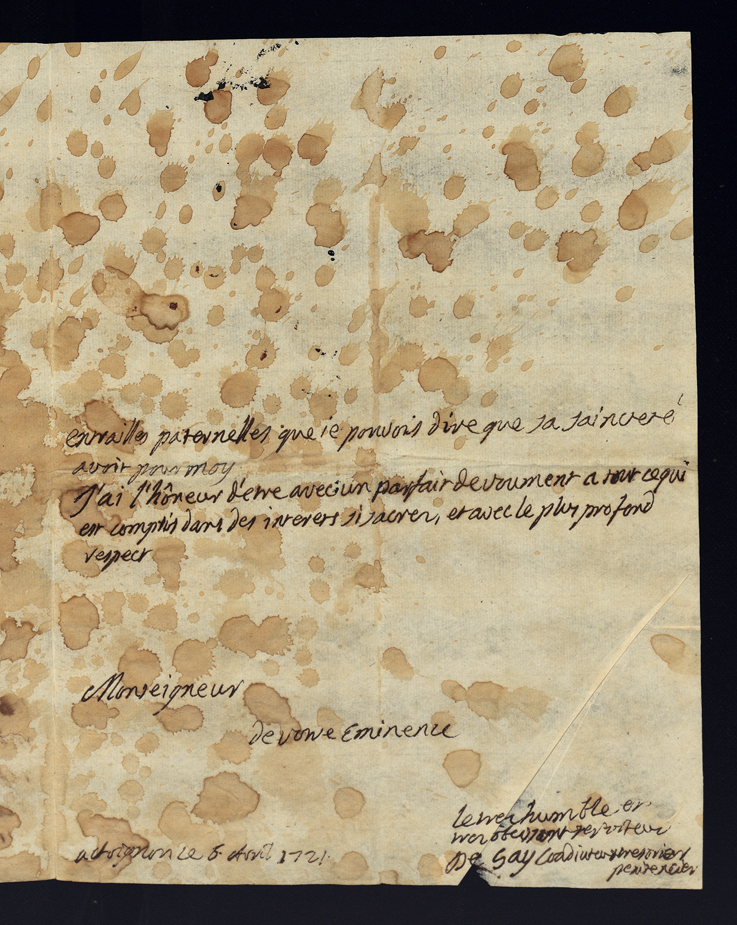 entrailles paternelles que ie pouvois dire que sa sainteté
avoit pour moy
J'ai l'hôneur d'etre avec un parfait devoument a tout ce qui
est compris dans des interets si sacrez, et avec le plus profond
respect
Monseigneur
de votre Eminence
le tres humble et
tres obeissant serviteur
De Gay Coadiuteur tresorier
penitencier
a Avignon ce 6 Avril 1721